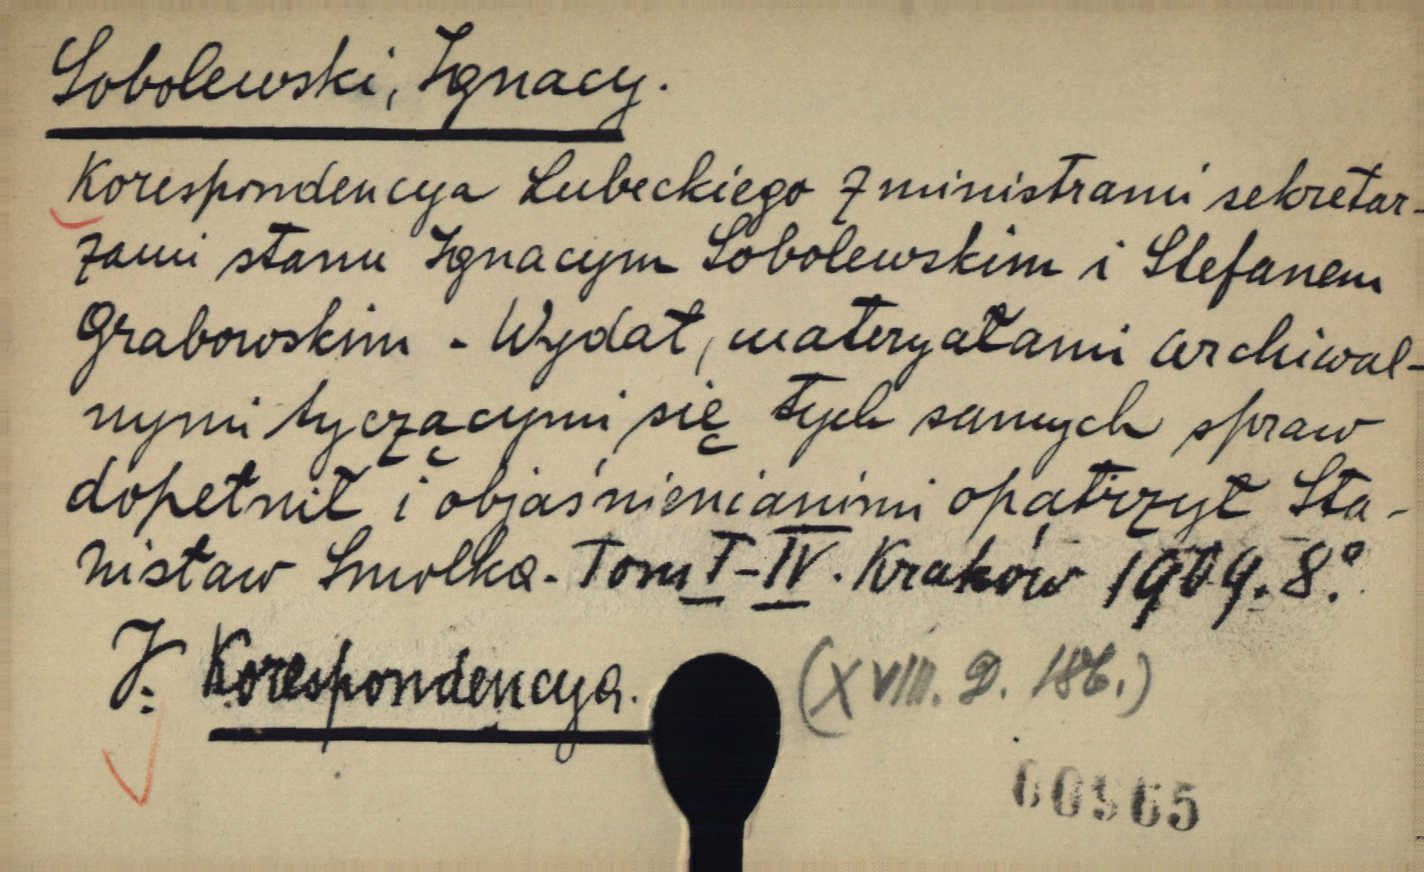 Sobolewski, Ignacy.
Korespondencya Lubeckiego z ministrami sekretar-
zami stanu Ignacym Sobolewskim i Stefanem
Grabowskim - Wydał, materyałami archiwal-
nymi tyczącymi się tych samych spraw
dopełnił i objaśnieniamimi opatrzył Sta-
nisław Smolka. Tom I-IV. Kraków 1909. 8.°
V: Korespondencya.
(XVIII. D. 186.)
00965